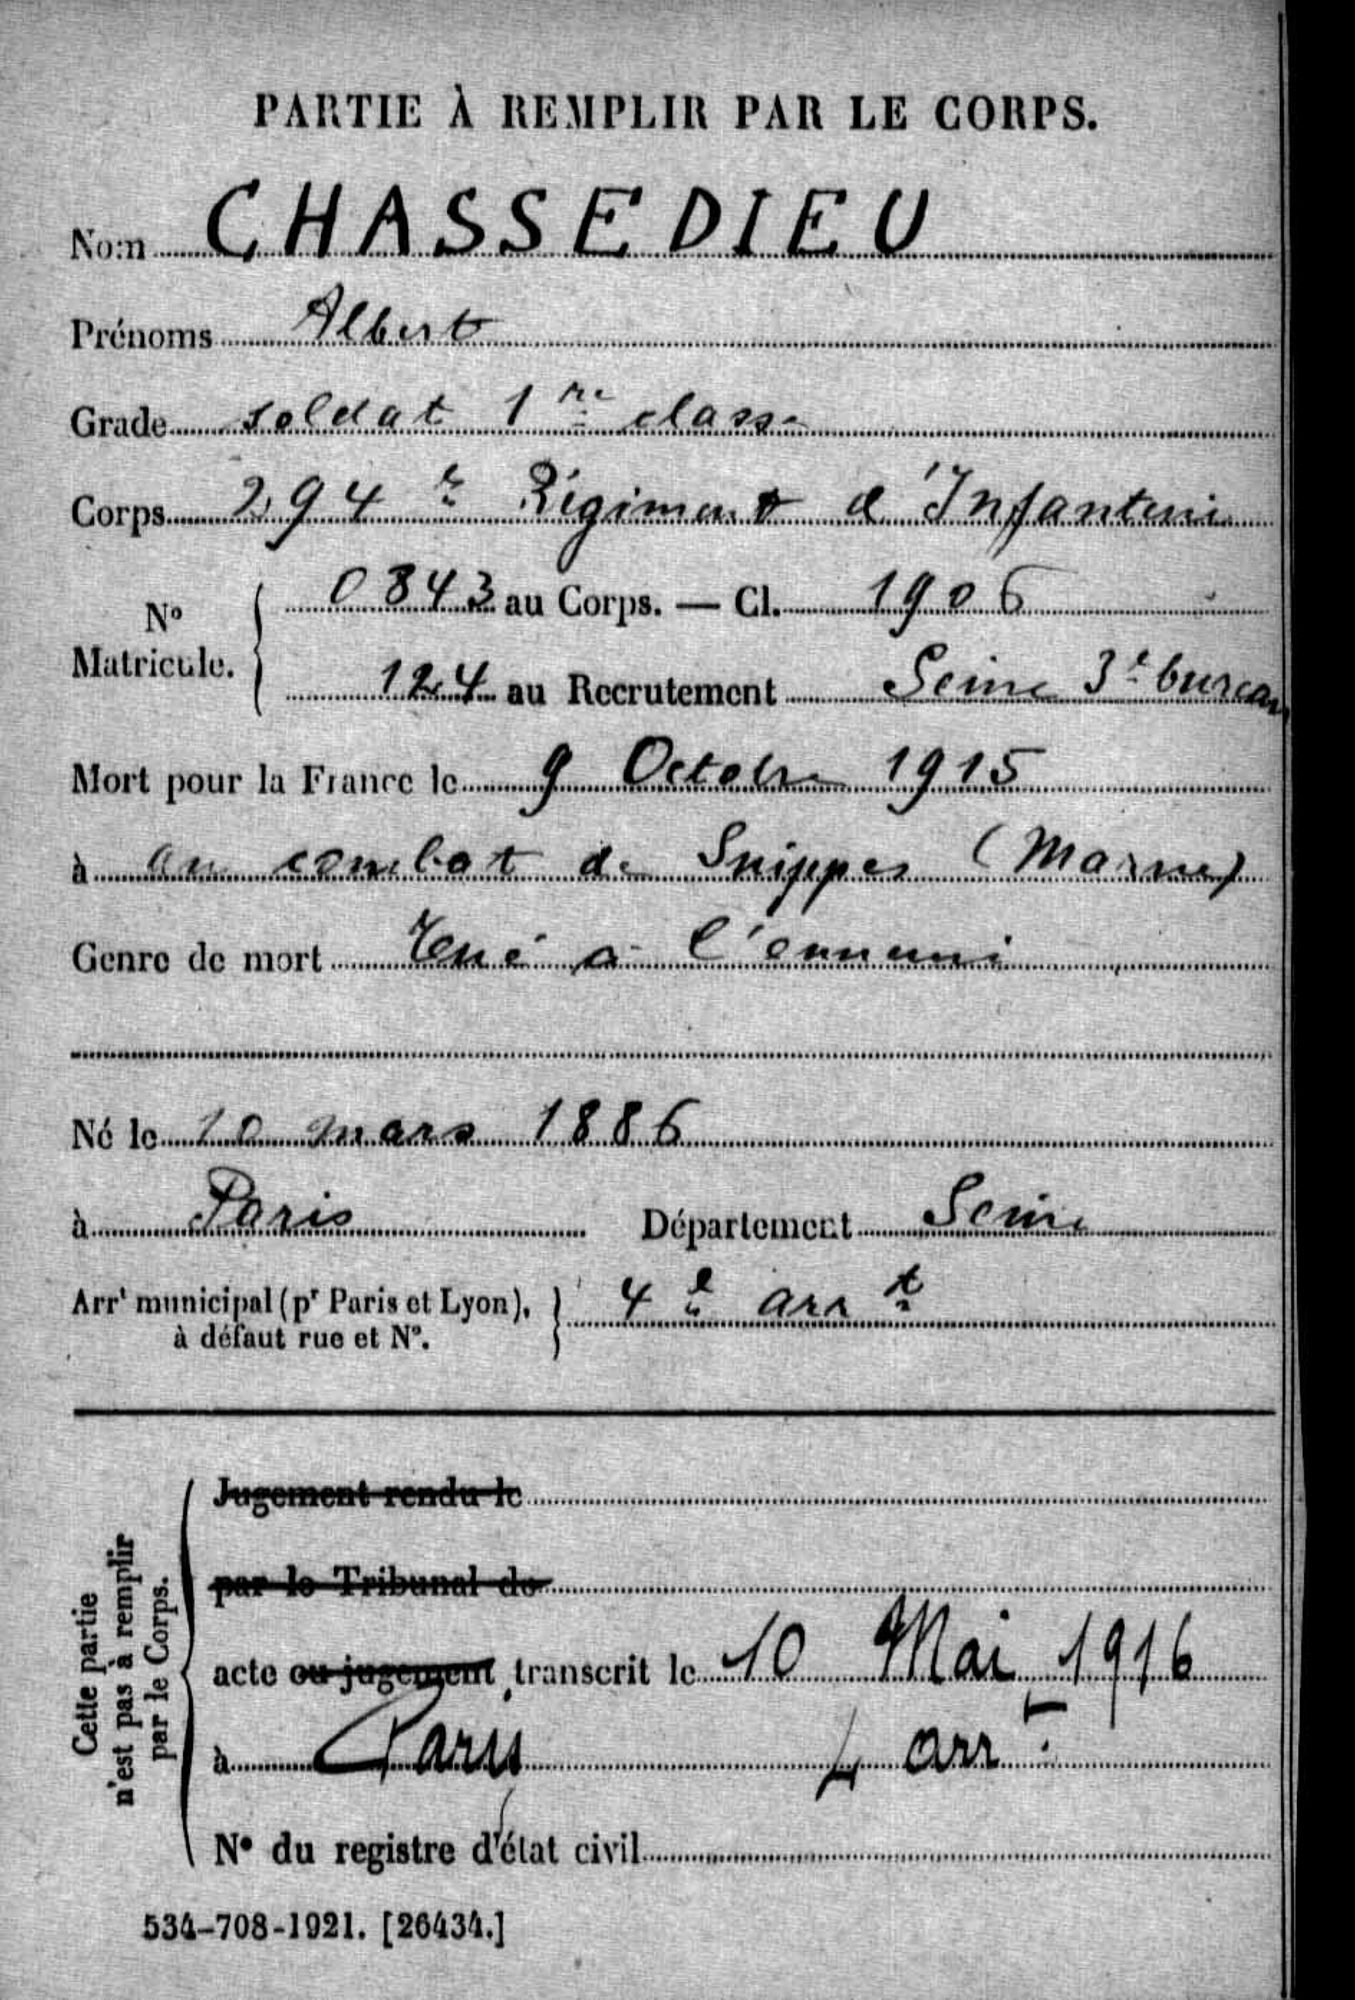 PARTIE À REMPLIR PAR LE CORPS.
Nom CHASSEDIEU
Prénoms Albert
Grade soldat 1re classe
Corps 294e Régiment d'Infanterie
No Matricule. 0843 au Corps. — Cl. 1906
124 au Recrutement Seine 3e bureau
Mort pour la France le 9 Octobre 1915
à au combat de Suippes (Marne)
Genre de mort Tué à l'ennemi
Né le 10 mars 1886
à Paris Département Seine
Arrt municipal (pr Paris et Lyon), à défaut rue et No. 4e arrt
Cette partie n'est pas à remplir par le Corps.
Jugement rendu le
par le Tribunal de
acte ou jugement transcrit le 10 Mai 1916
à Paris 4 arrt
No du registre d'état civil
534-708-1921. [26434.]